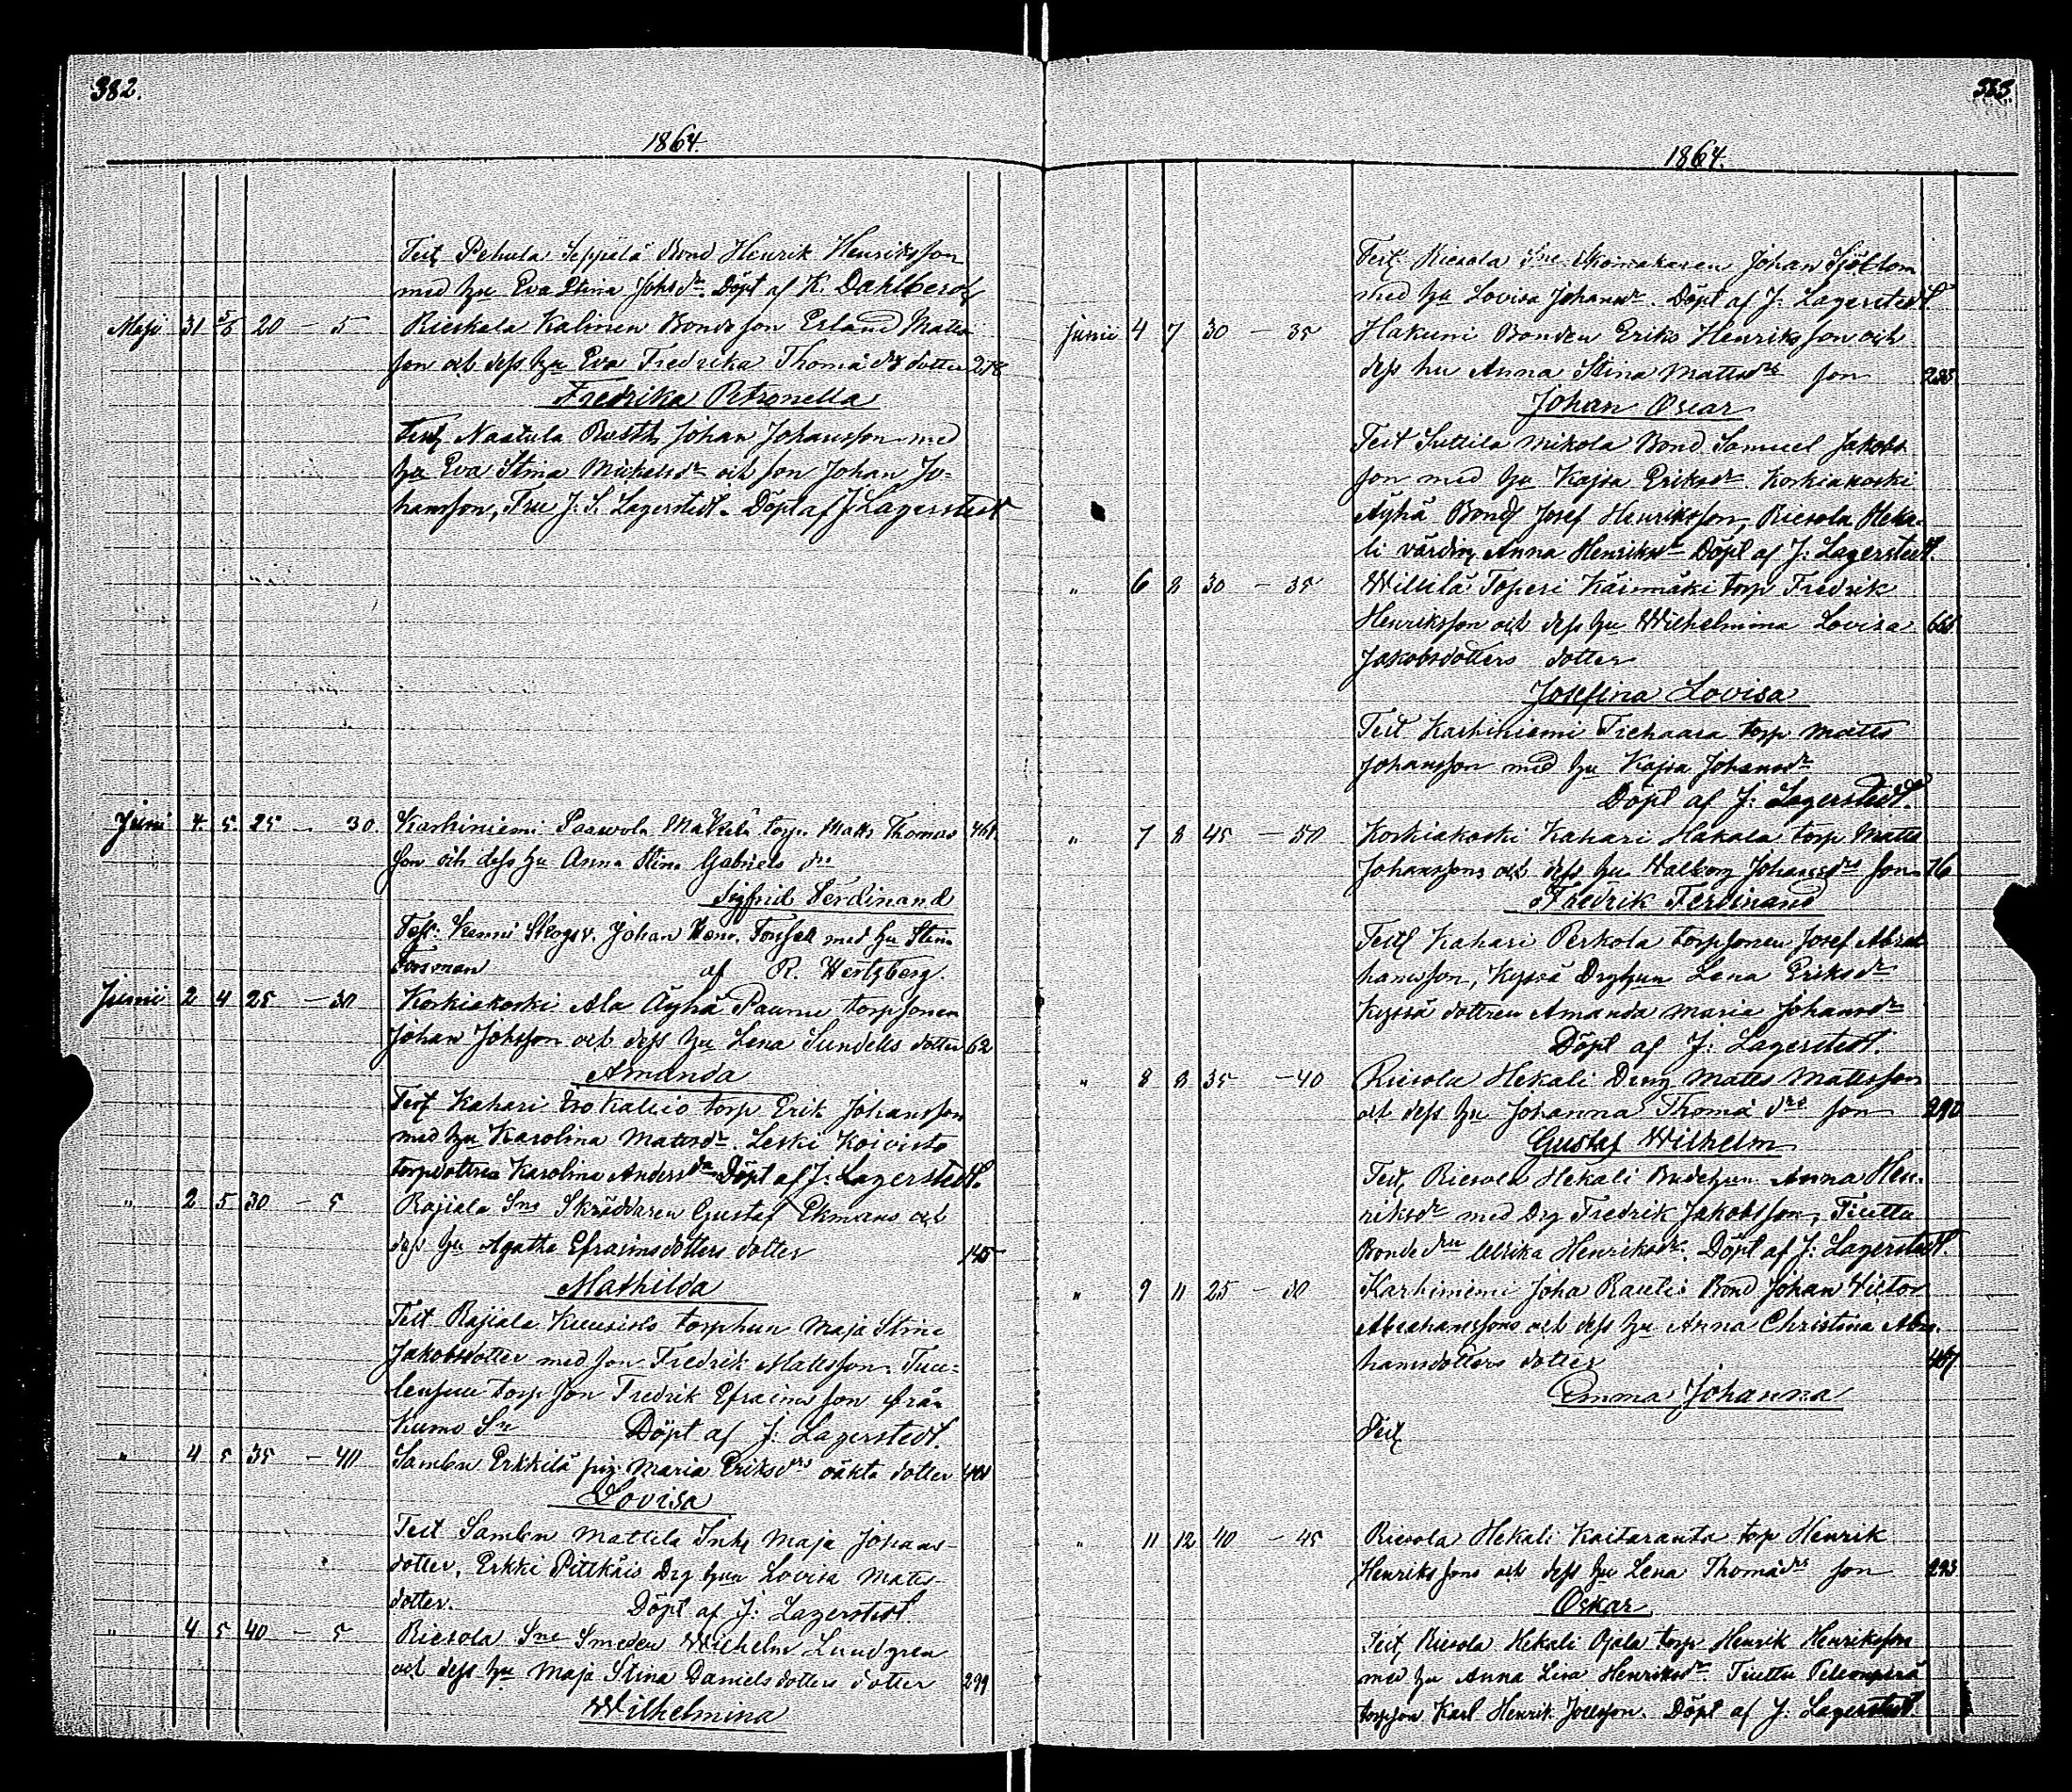 382.
1864.
Test Pehula Seppälä Bond Henrik Henriksson
med hu Eva Stina Johsdr. Döpt af K. Dahlberg
Maji 31 5/6 20 – 5 Rieskala Kalinen Bondeson Erland Matts
son och dess hu Eva Fredrika Thomædrs dotter 258
Fredrika Petronella
Test Naatula Rusth Johan Johansson med
hu Eva Stina Mickelsdr och son Johan Jo-
hansson, Fru J. S. Lagerstedt. Döpt af J Lagerstedt
Juni 4. 5. 25 – 30. Karhiniemi Paawola Mäkelä torp. Matts Thomas 461.
son och dess hu Anna Stina Gabriels drs
Sigfrid Ferdinand
Test: Kenni Skogsv. Johan Henr. Forssell med hu Stina
Forsman af R. Hertzberg.
Junii 2 4 25 – 30 Korkiakoski Ala Äyhä Paunu torpsonen
Johan Johsson och dess hu Lena Sundells dotter 62
Amanda
Test Kahari Isokallio torp Erik Johansson
med hu Karolina Mattsdr. Leski Koivisto
torpdottren Karolina Andersdr Döpt af J. Lagerstedt.
" 2 5 30 – 5 Rajiala Sns Skräddaren Gustaf Ekmans och
dess hu Agatha Efraimsdotters dotter 145
Mathilda
Test Rajiala Kuusisto torphun Maja Stina
Jakobsdotter med son Fredrik Mattsson. Tuu-
lensuu torp son Fredrik Efraimsson från
Kumo Sn Döpt af J: Lagerstedt.
" 4 5 35 – 40 Sambu Erkkilä pig. Maria Eriksdrs oäkta dotter 401
Lovisa
Test Sambu Mattila Inh Maja Johans-
dotter, Erkki Pittkäis Drg hun Lovisa Matts-
dotter. Döpt af J: Lagerstedt
" 4 5 40 – 5 Riesola Sns Smeden Wilhelm Lundgren
och dess hu Maja Stina Danielsdotters dotter 299
Wilhelmina
383
1864.
Test Riesola Sns Skomakaren Johan Sjöblom
med hu Lovisa Johansdr. Döpt af J: Lagerstedt.
Junii 4 7 30 – 35 Hakuni Bonden Eriks Henriksson och
dess hu Anna Stina Mattsdrs son 233
Johan Oscar
Test Suttila Mikola Bond Samuel Jakobs
son med hu Kajsa Eriksdr. Korkiakoski
Äyhä Bond Josef Henriksson, Riesola Heka-
li värdin Anna Henriksdr Döpt af J: Lagerstedt.
" 6 8 30 – 35 Willilä Toperi Käinmäki torp Fredrik
Henriksson och dess hu Wilhelmina Lovisa 661
Jakobsdotters dotter
Josefina Lovisa
Test Karhiniemi Trehaara torp Matts
Johansson med hu Kajsa Johansdr
Döpt af J: Lagerstedt.
" 7 8 45 – 50 Korkiakoski Kahari Hakala torp Matts
Johanssons och dess hu Walborg Johansdrs son 76
Fredrik Ferdinand
Test Kahari Perkola torpsonen Josef Abra
hamsson, Kyssä Drghun Lena Eriksdr
Kyssä dottren Amanda Maria Johansdr
Döpt af J: Lagerstedt.
" 8 8 35 – 40 Riesola Hekali Dreng Matts Mattsson
och dess hu Johanna Thomædrs son 290
Gustaf Wilhelm
Test Riesola Hekali Bndehun Anna Hen-
riksdr med Drg Fredrik Jakobsson, Tiuttu
Bondedrn Ulrika Henriksdr. Döpt af J: Lagerstedt.
" 9 11 25 – 30 Karhiniemi Joha Rauti Bond Johan Victor
Abrahamssons och dess hu Anna Christina Abra-
hamsdotters dotter 457
Emma Johanna
Test
" 11 12 40 – 45 Riesola Hekali Kaitaranta torp Henrik
Henrikssons och dess hu Lena Thomædrs son 293
Oskar
Test Riesola Hekali Ojala torp Henrik Henriksson
med hu Anna Lisa Henriksdr Tiuttu
torpson Karl Henrik Döpt af J. Lagerstedt